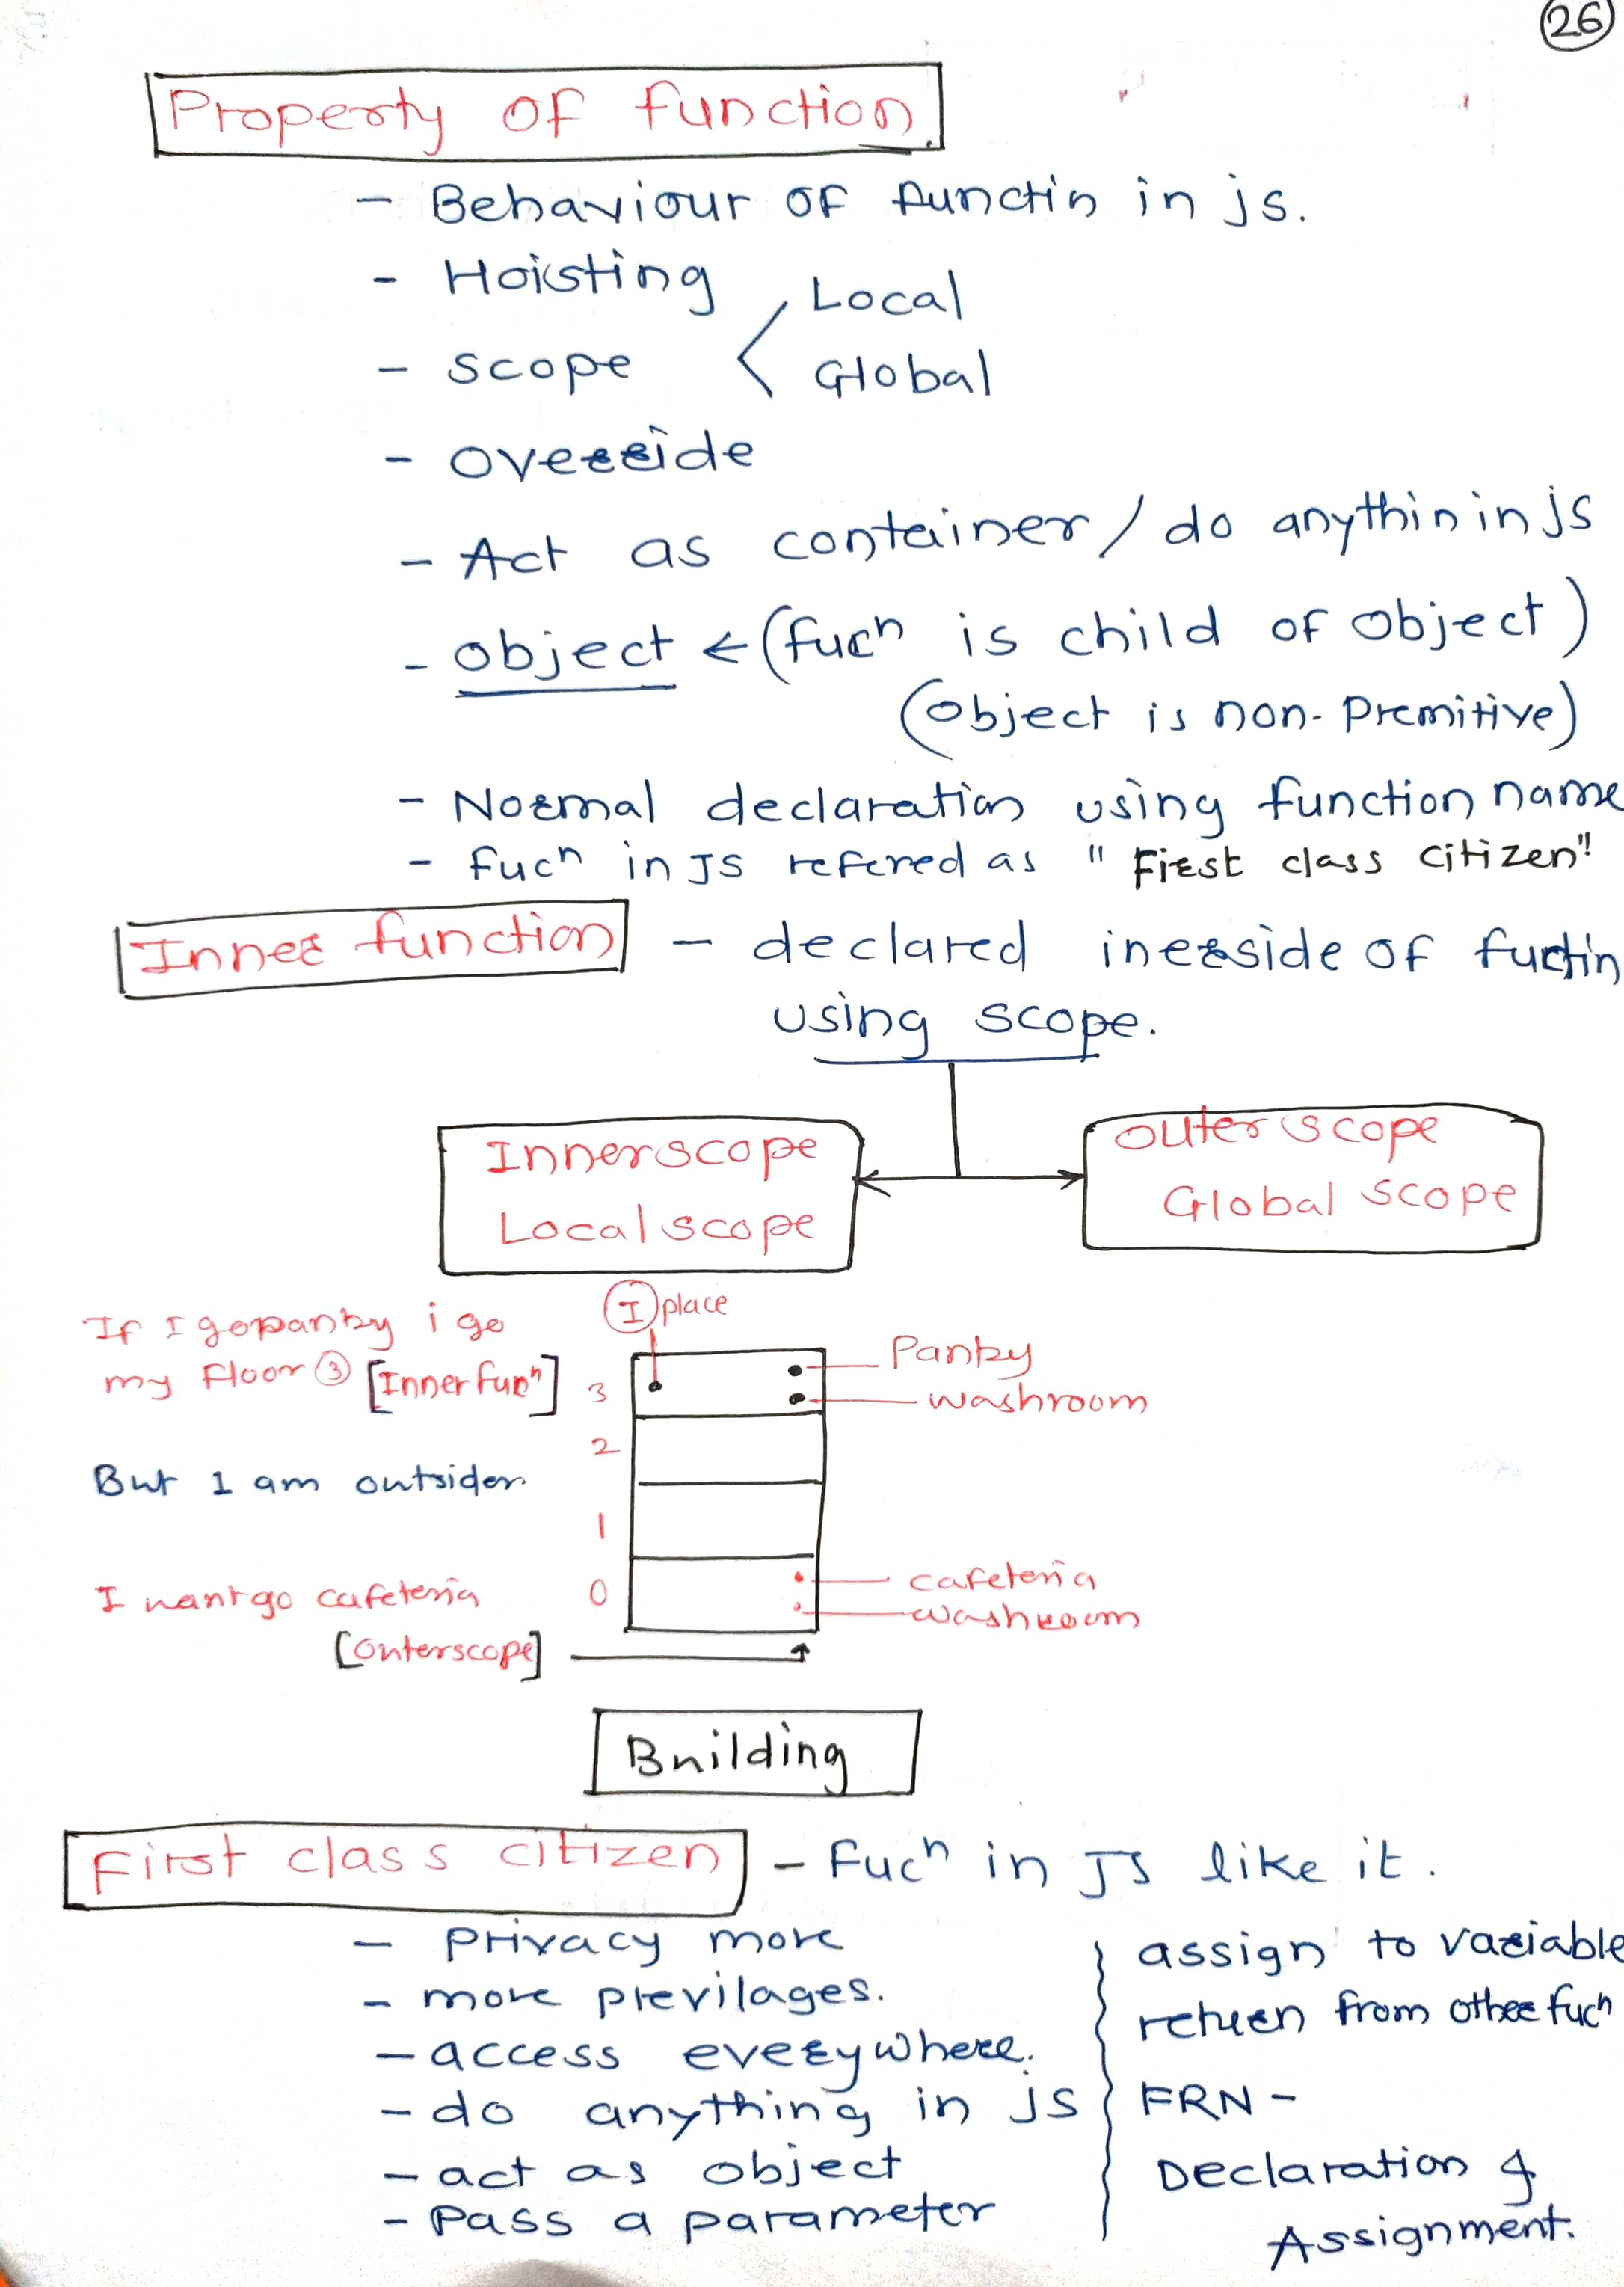 26
Property of function.
- Behaviour of functin in js.
- Hoisting
Local
- scope
Global
- override
- Act as container / do anythin in js
- object ← (fucn is child of object)
(object is non-premitive)
- Normal declaration using function name
- fucn in JS refered as "First class citizen"
Inner function - declared inerside of fuctin
using scope.
Innerscope
Local scope
outer scope
Global scope
I place
If I go pantry i go
my floor 3 [Inner fucn]
3
Pantry
washroom
2
But I am outsider.
1
I want go cafeteria
0
cafeteria
washroom
[outerscope]
Building
First class citizen - fucn in JS like it.
- privacy more
- more previlages.
- access everywhere.
- do anything in js
- act as object
- pass a parameter
assign to variable
return from other fucn
FRN -
Declaration &
Assignment.